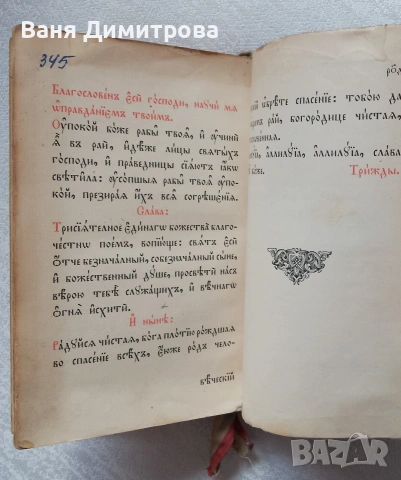 Ваня Димитрова
345
Благословенъ єсѝ гд҇споди, научи мѧ
ѡправданїємъ твоимъ.
Оупокой боже рабы̑ твоѧ̑, и̑ оучини̑
ѧ̑ въ рай, и̑дѣже лицы свѧтыхъ
господи, и̑ праведницы сїѧютъ ꙗ̑кѡ
свѣтила: оусопшыѧ рабы̑ твоѧ̑ оупо-
кой, презираѧ и̑хъ всѧ̑ согрѣшенїѧ.
Слава:
Трисїѧтельное єдинагѡ божества благо-
честнѡ поемъ, вопїюще: свѧтъ єсѝ
ѻтче безначальный, собезначальный сыне,
и̑ божественный душе, просвѣти насъ
вѣрою тебѣ служащихъ, и̑ вѣчнагѡ
ѻгнѧ и̑схити.
И̑ нынѣ:
Радуйсѧ чистаѧ, бога плотїю рождшаѧ
во спасенїе всѣхъ, єюже родъ чело-
вѣческїй
и̑ ѡбрѣте спасенїе: тобою да
рай, богородице чистаѧ,
аллилуїа, аллилуїа, слава
боже.
Трижды.
BAZAR